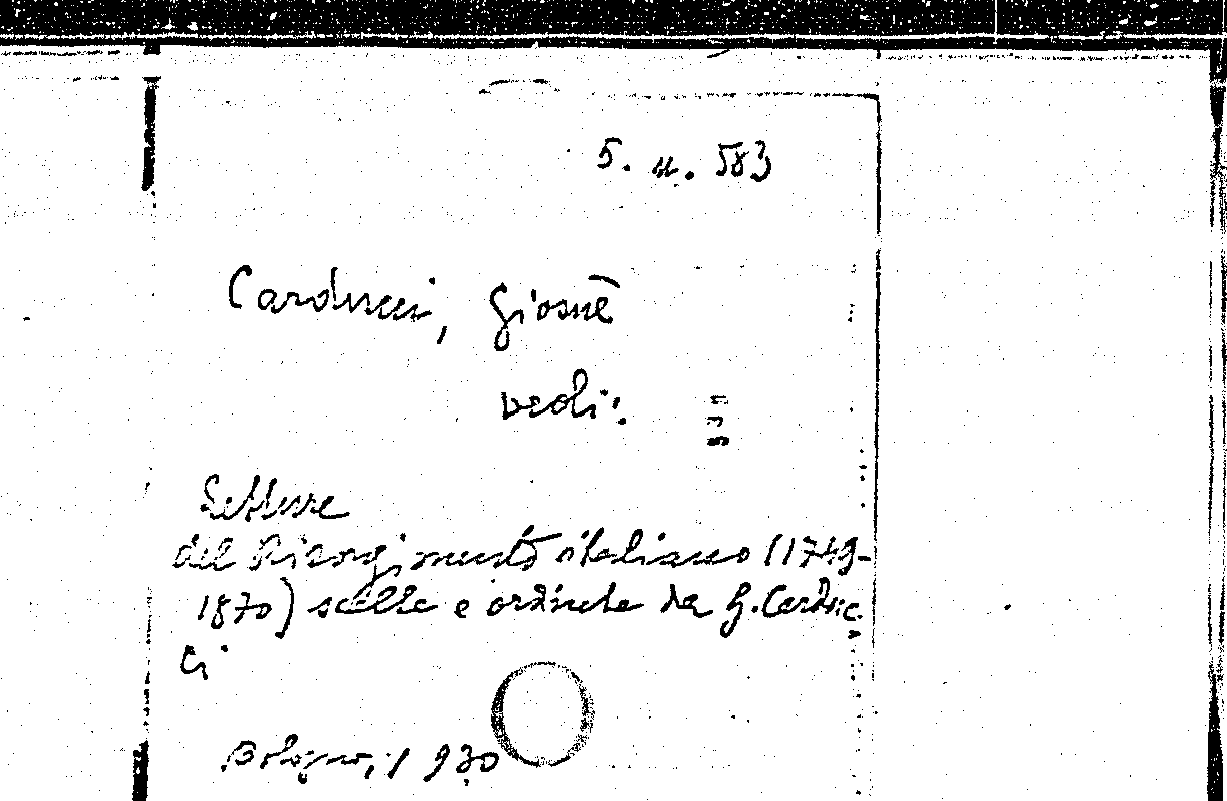 5. u. 583
Carducci, Giosuè
vedi:
Letture
del Risorgimento italiano (1749-
1870) scelte e ordinate da G. Carduc
ci
Bologna, 1930